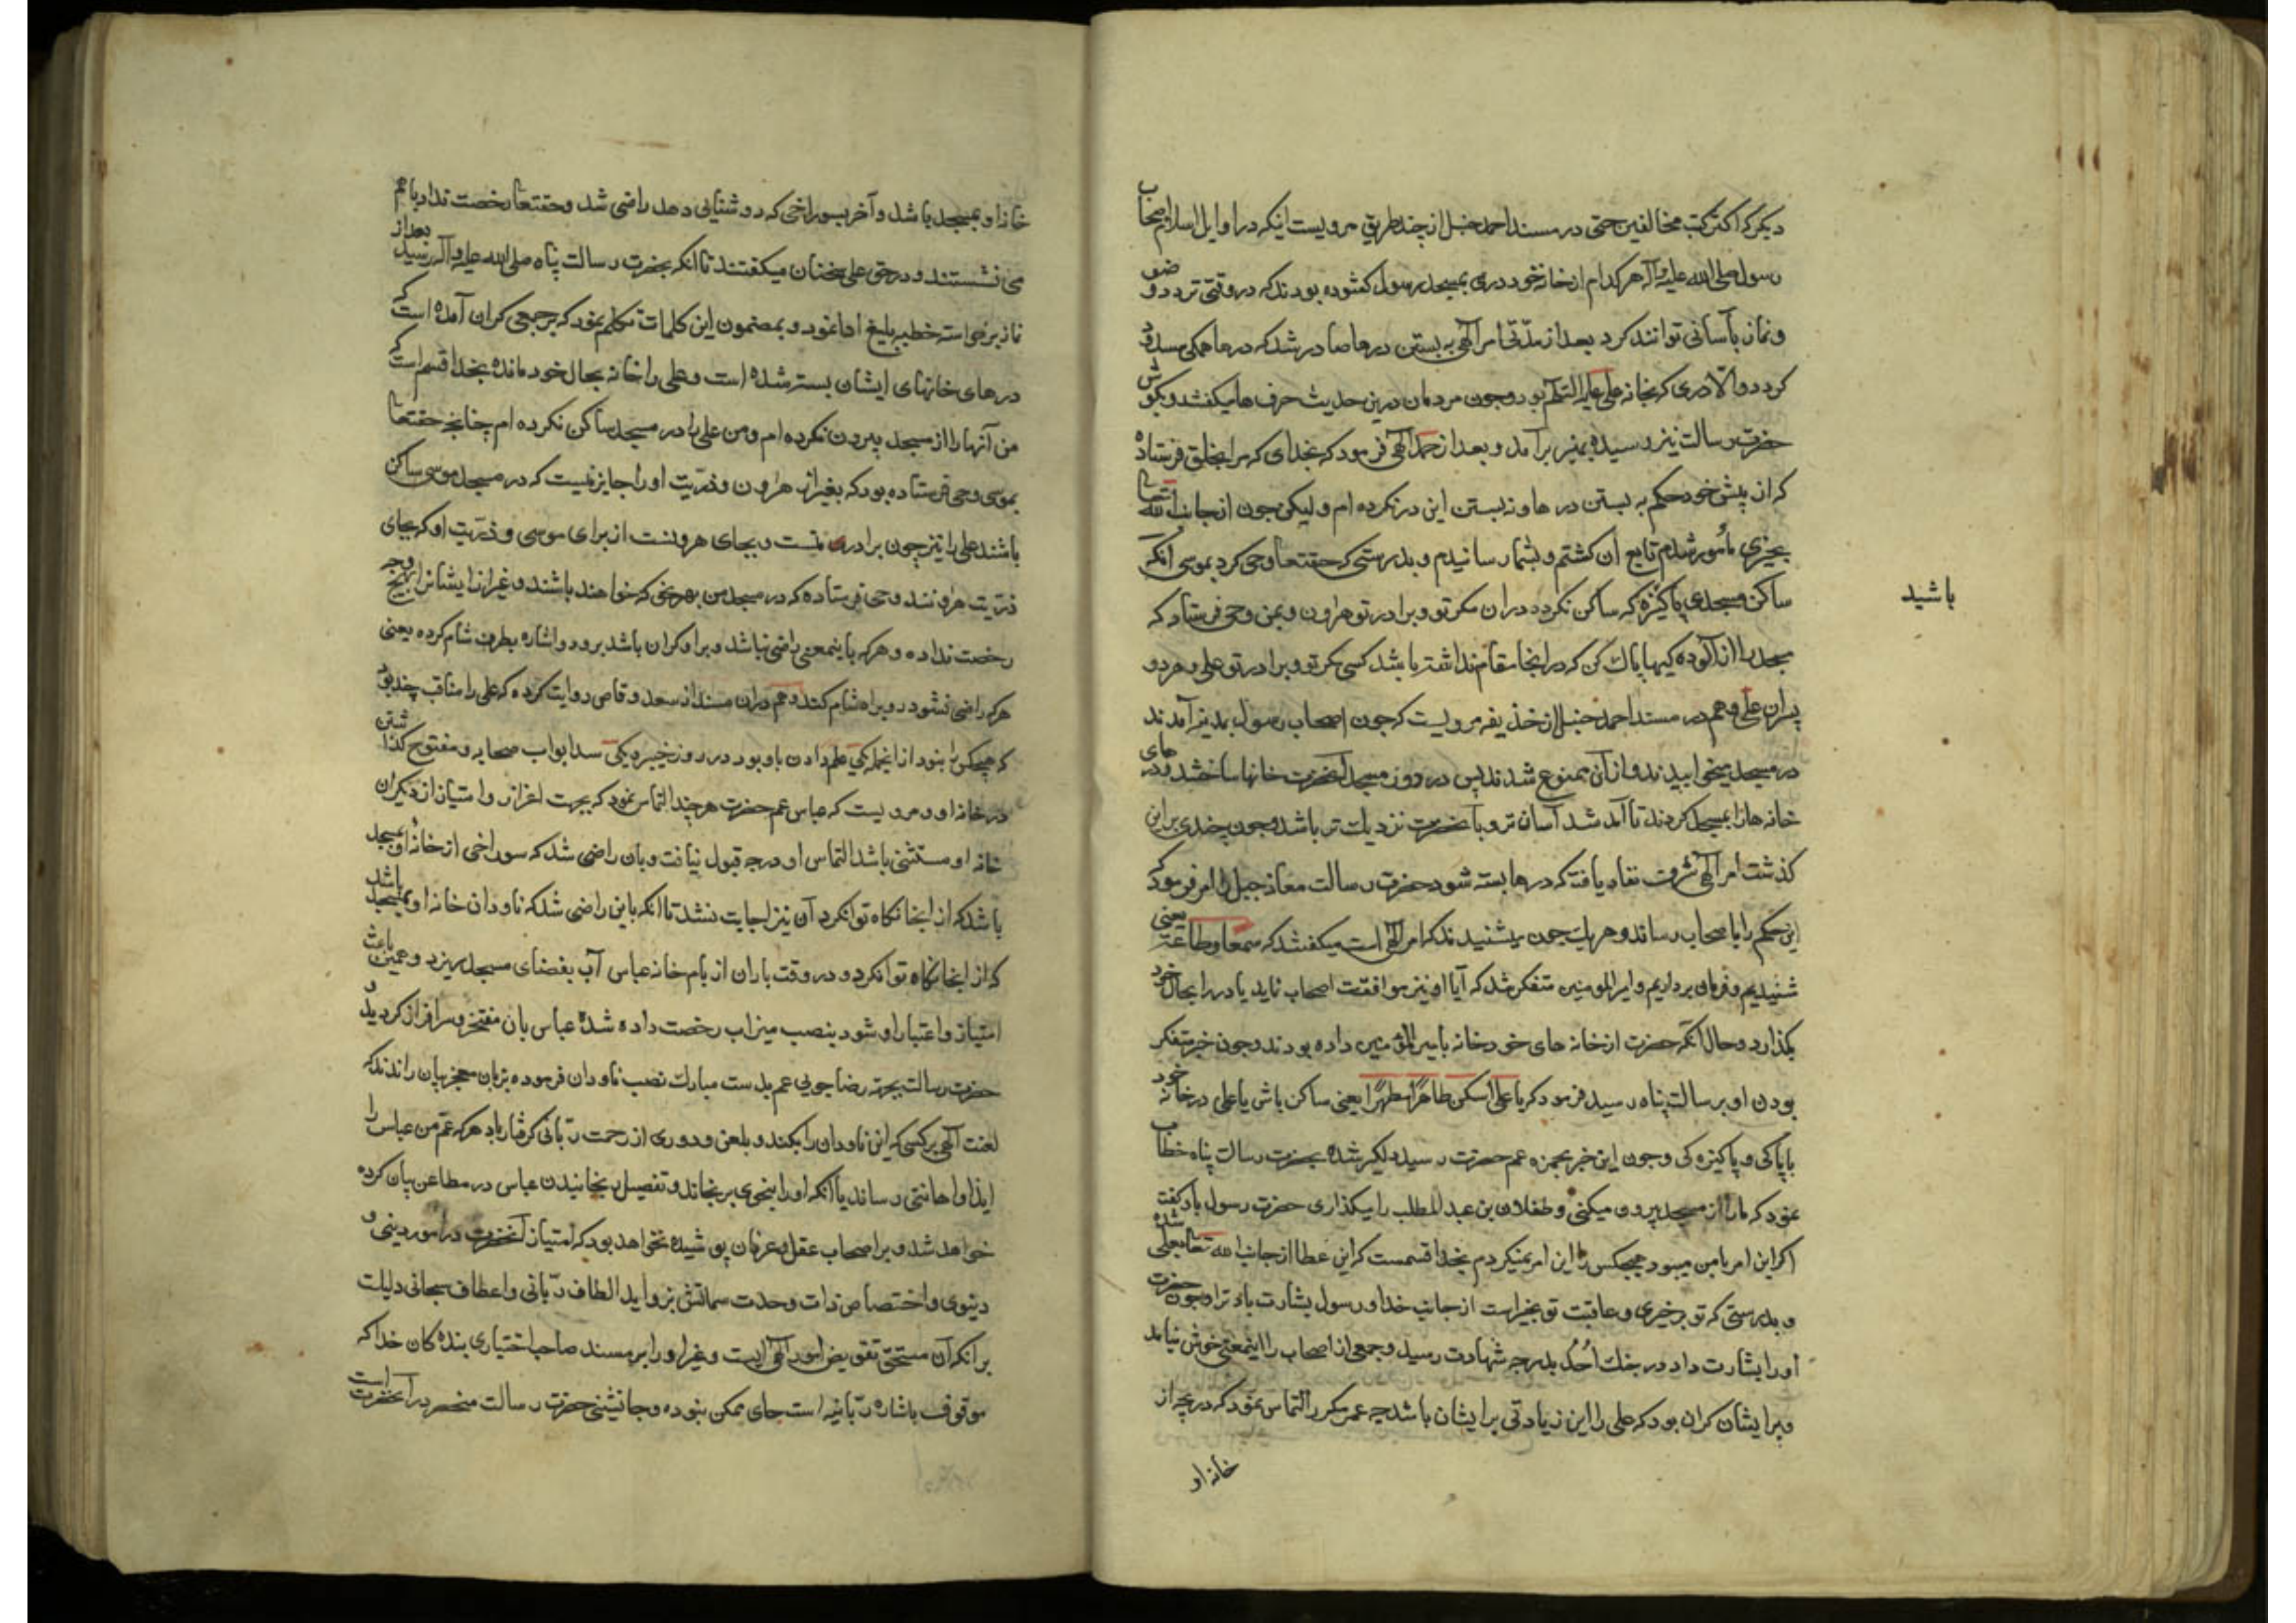 دیکر که اکثر کتب مخالفین حتی در مسند احمد حنبل از چند طریق مرویست اینکه در اوایل اسلام اصحاب
رسول صلی الله علیه وآله هر کدام از خانه خود دری بمسجد رسول کشوده بودند که در وقتی تردد وضو
و نماز بآسانی توانند کرد بعد از مدّتی امر الٓهی به بستن درها صادر شد که درها همکی مسدود
کردد والّا دری که بخانه علی علیه السّلم بود و چون مردمان درین حدیث حرف ها میکفتند و بکوش
حضرت رسالت نیز رسیده بمنبر برآمد و بعد از حمد الٓهی فرمود که بخدای که مرا بخلق فرستاده
که از پیش خود حکم به بستن درها و نه بستن این در نکرده ام ولیکن چون از جانب الله تعالی
بچیزی مأمور شدم تابع آن کشتم و بشما رسانیدم و بدرستی که حقتعا وحی کرد بموسی آنکه
ساکن مسجدی پاکیزه که ساکن نکردد دران مکر تو و برادر تو هرون و بمن وحی فرستاد که
مسجد را از آلوده کیها پاك کن که در اینجا مقام نداشته باشد کسی مکر تو و برادر تو علی و هر دو
پسران علی و هم در مسند احمد حنبل از خذیفه مرویست که چون اصحاب رسول بمدینه آمدند
در مسجد میخوابیدند و از آن ممنوع شدند پس در دور مسجد آنحضرت خانها ساختند و در های
خانه ها را بمسجد کردند تا آمد شد آسان تر و بآنحضرت نزدیك تر باشد و چون چندی براین
کذشت امر الٓهی شرف نفاد یافته که درها بسته شود حضرت رسالت معاذ جبل را امر فرمود که
این حکم را باصحاب رساند و هر یك چون میشنیدند که امر الٓهی است میکفتند که سمعا وطاعة یعنی
شنیدیم و فرمان برداریم و امیر المومنین متفکر شد که آیا او نیز موافقت اصحاب نماید یا در را بحال خود
بکذارد و حال آنکه حضرت از خانه های خود خانه بامیر المؤمنین داده بودند و چون خبر متفکر
بودن او برسالت پناه رسید فرمود که یا علی اسکن طاهرًا مطهرًا یعنی ساکن باش یا علی در خانه خود
باپاکی و پاکیزه کی و چون این خبر بحمزه عم حضرت رسید دلکیر شده بحضرت رسالت پناه خطاب
نمود که مارا از مسجد بیرون میکنی و طفلان بن عبد المطلب را میکذاری حضرت رسول باو کفت
اکر این امر بامن میبود هیچکس را این امر نمیکردم بخدا قسمست که این عطا از جانب الله تعا بعلی شده
و بدرستی که تو بر خیری و عاقبت تو بخیر است از جانب خدا و رسول بشارت باد ترا و چون حضرت
او را بشارت داد در جنك اُحُد بدرجه شهادت رسید و جمعی از اصحاب را اینمعنی خوش نیامد
و برایشان کران بود که علی را این زیادتی برایشان باشد چه عمر مکرر التماس نمود که دریچه از
خانه او
باشید
خانه او بمسجد باشد و آخر بسوراخی که روشنایی دهد راضی شد و حقتعا رخصت نداد باهم
می نشستند و در حق علی سخنان میکفتند تا آنکه بحضرت رسالت پناه صلی الله علیه وآله رسید بعد از
نماز برخواسته خطبه بلیغ ادا نمود و بمضمون این کلمات تکلم نمود که بر جمعی کران آمده است که
درهای خانهای ایشان بسته شده است و علی را خانه بحال خود مانده بخدا قسم است که
من آنها را از مسجد بیرون نکرده ام و من علی را در مسجد ساکن نکرده ام چنانچه حقتعا
بموسی وحی فرستاده بود که بغیر از هرون و ذرّیت او را جایز نیست که در مسجد موسی ساکن
باشند علی را نیز چون برادر منست و بجای هرونست از برای موسی و ذرّیت او که بجای
ذرّیت هرونند وحی فرستاده که در مسجد من بهر نحوی که خواهند باشند و غیر از ایشان را بهیچ وجه
رخصت نداده و هر که باینمعنی راضی نباشد و بر او کران باشد برود و اشاره بطرف شام کرده یعنی
هر که راضی نشود رو براه شام کند و هم دران مسند از سعد وقاص روایت کرده که علی را مناقب چند بود
که هیچکس را نبود از انجمله یکی علم دادن باو بود در روز خیبر دیکی سد ابواب صحابه و مفتوح کذاشتن
در خانه او و مرویست که عباس عم حضرت هر چند التماس نمود که بجهت اعزاز و امتیاز از دیکران
خانه او مستثنی باشد التماس او درجه قبول نیافت و بان راضی شد که سوراخی از خانه او بمسجد
باشد که از انجا نکاه تواند کرد آن نیز اجابت نشد تا آنکه باین راضی شد که ناودان خانه او بمسجد باشد
که از انجا نکاه تواند کرد و در وقت باران از بام خانه عباس آب بفضای مسجد بریزد و همین باعث
امتیاز و اعتبار او شود بنصب میزاب رخصت داده شده عباس بان مفتخر و سرافراز کردید و
حضرت رسالت بجهة رضا جویی عم بدست مبارك نصب ناودان فرموده بزبان معجز بیان راندند که
لعنت الٓهی بر کسی که این ناودان را بکند و بلعن و دوری از رحمت ربّانی کرفتار باد هر که عم من عباس را
ایذا و اهانتی رساند یا آنکه او را بنحوی برنجاند و تفصیل رنجانیدن عباس در مطاعن بیان کرده
خواهد شد و بر اصحاب عقل و عرفان پوشیده نخواهد بود که امتیاز آنحضرت در امور دینی و
دنیوی و اختصاص ذات وحدت سماتش بزواید الطاف ربّانی و اعطاف سبحانی دلیلت
بر انکه آن مستحق تفویض امور الٓهی است و غیر او را بر مسند صاحب اختیاری بنده کان خدا که
موقوف باشاره ربّانیه است جای ممکن نبوده و جانشینی حضرت رسالت منحصر در آنحضرت است